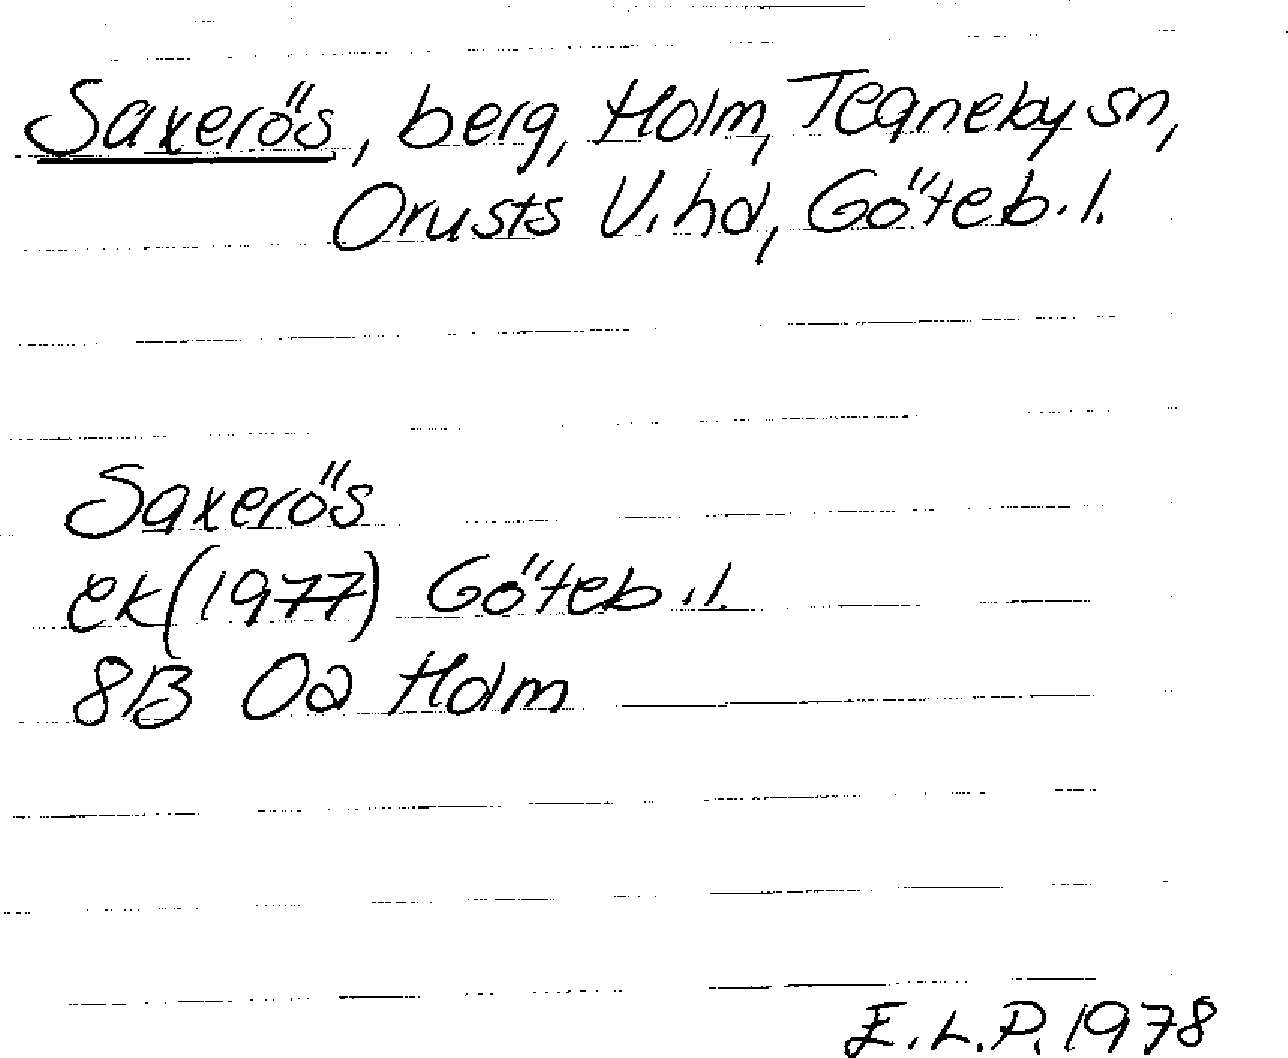 Saxerös, berg, Holm, Tegneby sn,
Orusts V. hd, Göteb. l.
Saxerös
ek (1977) Göteb. l.
8B 0a Holm
E.L.P. 1978